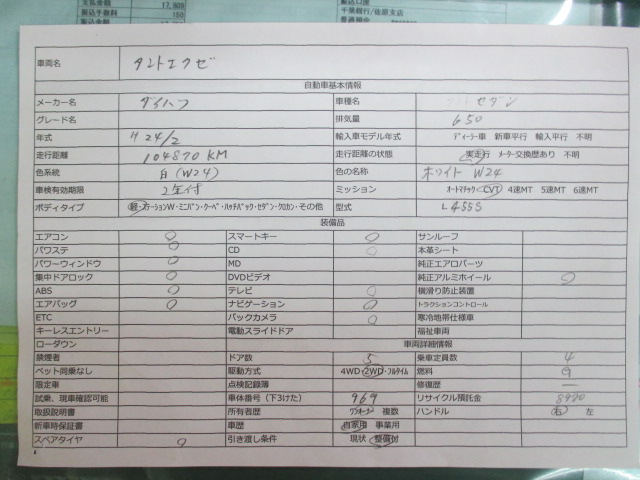 支払金額 17,808
振込手数料 150
振込口座
千葉銀行/佐原支店
車両名 タントエクゼ
自動車基本情報
メーカー名 ダイハツ 車種名 セダン
グレード名 排気量 650
年式 H24/2 輸入車モデル年式 ディーラー車 新車平行 輸入平行 不明
走行距離 104870KM 走行距離の状態 実走行 メーター交換歴あり 不明
色系統 白(W24) 色の名称 ホワイト W24
車検有効期限 2年付 ミッション オートマチック CVT 4速MT 5速MT 6速MT
ボディタイプ 軽・ステーションW・ミニバン・クーペ・ハッチバック・セダン・クロカン・その他 型式 L455S
装備品
エアコン ○ スマートキー ○ サンルーフ
パワステ ○ CD ○ 本革シート
パワーウィンドウ ○ MD 純正エアロパーツ
集中ドアロック ○ DVDビデオ 純正アルミホイール ○
ABS ○ テレビ ○ 横滑り防止装置
エアバッグ ○ ナビゲーション ○ トラクションコントロール
ETC バックカメラ ○ 寒冷地帯仕様車
キーレスエントリー 電動スライドドア 福祉車両
ローダウン 車両詳細情報
禁煙者 ドア数 5 乗車定員数 4
ペット同乗なし 駆動方式 4WD・2WD・フルタイム 燃料 G
限定車 点検記録簿 修復歴 ー
試乗、現車確認可能 車体番号(下3けた) 969 リサイクル預託金 8970
取扱説明書 所有者歴 ワンオーナー 複数 ハンドル 右 左
新車時保証書 車歴 自家用 事業用
スペアタイヤ ○ 引き渡し条件 現状 整備付